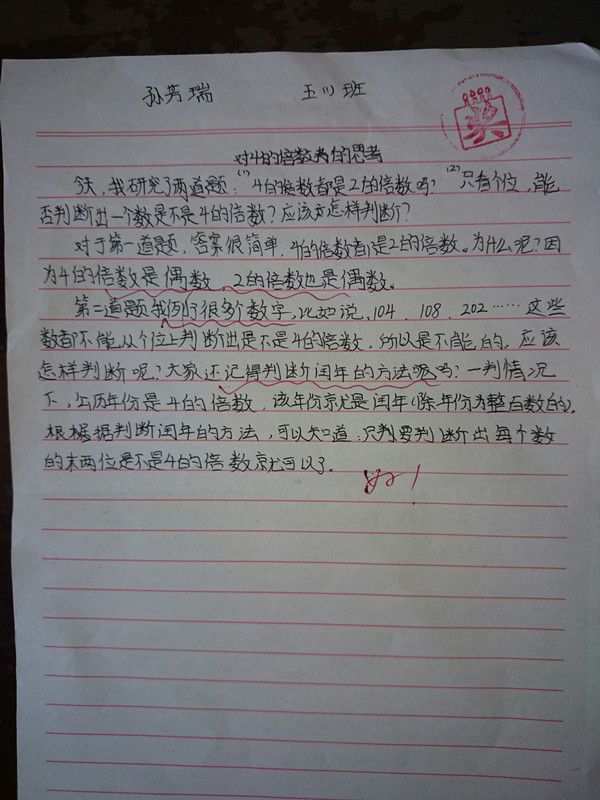 孙芳瑞 五(1)班
奖
对4的倍数的思考
今天,我研究了两道题:(1)4的倍数都是2的倍数吗?(2)只看个位,能
否判断出一个数是不是4的倍数?应该怎样判断?
对于第一道题,答案很简单,4的倍数都是2的倍数。为什么呢?因
为4的倍数是偶数,2的倍数也是偶数。
第二道题我例了很多个数字,比如说,104、108、202……这些
数都不能从个位上判断出是不是4的倍数,所以是不能的。应该
怎样判断呢?大家还记得判断闰年的方法吗?一判情况
下,公历年份是4的倍数,该年份就是闰年(除年份为整百数的)。
根据判断闰年的方法,可以知道,只要判断出每个数
的末两位是不是4的倍数就可以了。
好!